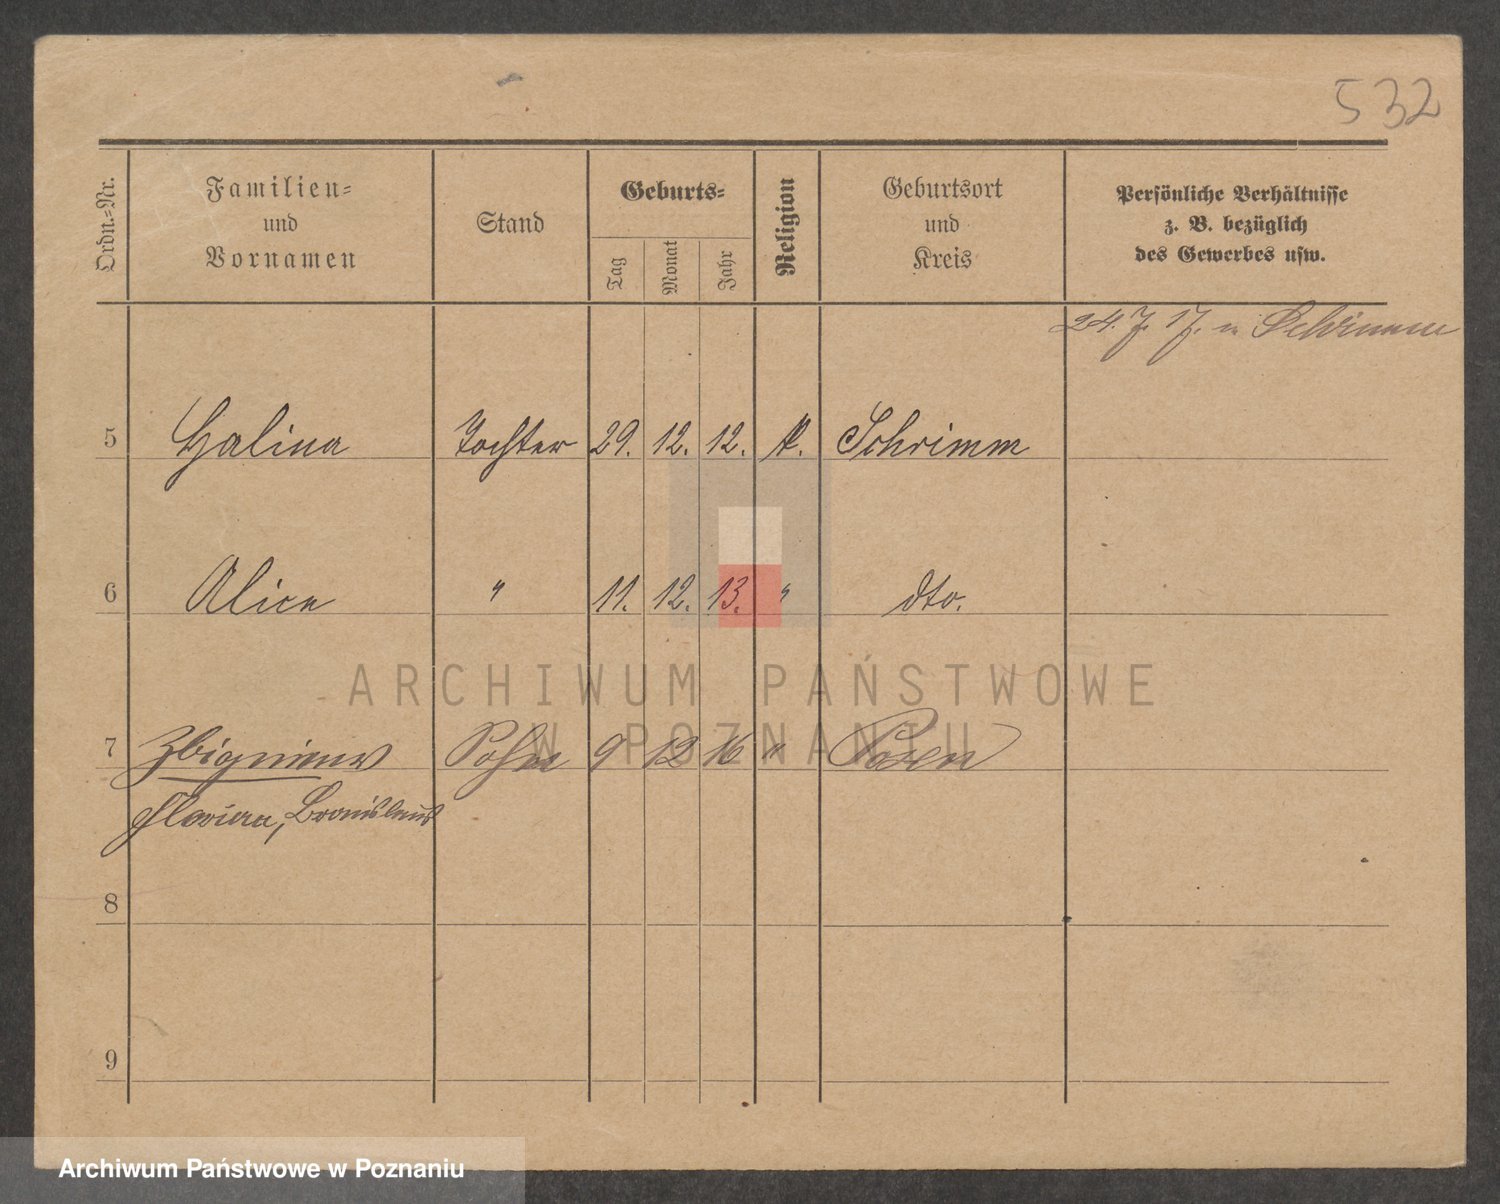 532
Ordn.=Nr.
Familien=
und
Vornamen
Stand
Geburts=
Tag
Monat
Jahr
Religion
Geburtsort
und
Kreis
Persönliche Verhältnisse
z. B. bezüglich
des Gewerbes usw.
24. 7. 17. in Schrimm
5 Halina Tochter 29. 12. 12. k. Schrimm
6 Alice " 11. 12. 13. " dto.
ARCHIWUM PAŃSTWOWE
W POZNANIU
7 Zbigniew Sohn 9 12 16 " Posen
Florian, Bronislaus
8
9
Archiwum Państwowe w Poznaniu